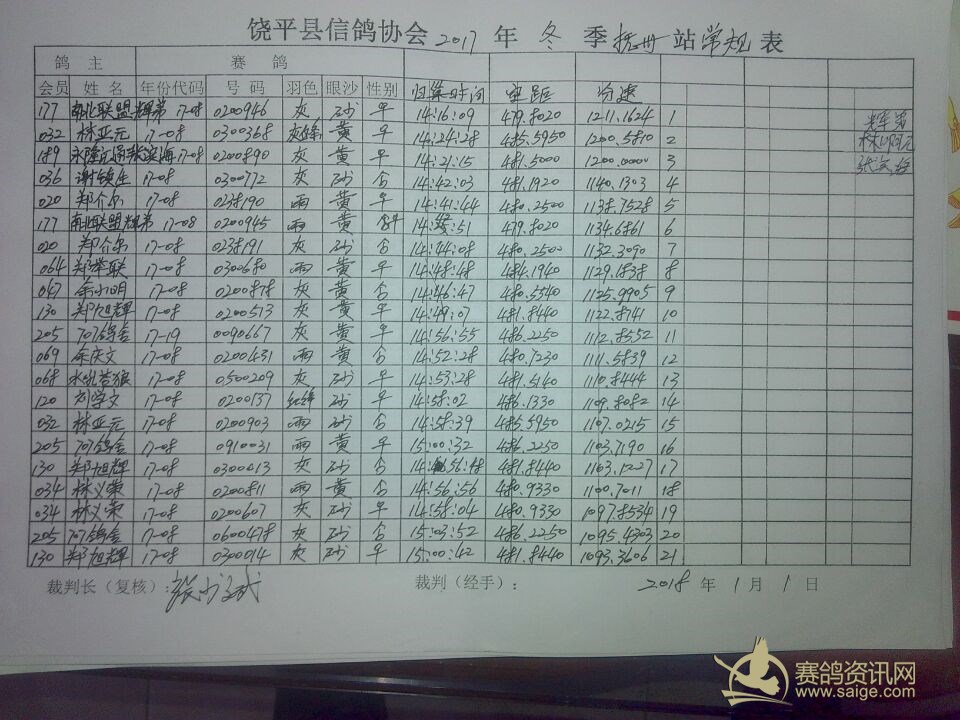 饶平县信鸽协会2017年冬季抚州站常规表
鸽主 赛鸽
会员 姓名 年份代码 号码 羽色 眼沙 性别 归巢时间 空距 分速
177 南北联盟辉弟 17-08 0200946 灰 砂 早 14:16:09 479.8020 1211.1624 1
032 林亚元 17-08 0300368 黄 早 14:24:28 485.5950 1200.5810 2
189 17-08 0200890 灰 黄 早 14:21:15 481.5000 1200.0000 3
036 谢镇生 17-08 0300772 灰 砂 否 14:42:03 481.1920 1140.1303 4
020 郑介尔 17-08 0238190 雨 黄 早 14:41:44 480.2500 1138.7528 5
177 南北联盟辉弟 17-08 0200945 雨 黄 479.8020 1134.6861 6
020 郑介尔 17-08 0238191 灰 砂 否 14:44:08 480.2500 1132.3090 7
064 郑举联 17-08 0300680 雨 黄 早 14:48:48 484.1940 1129.1838 8
047 余小明 17-08 0200878 灰 黄 否 14:46:47 480.5540 1125.9905 9
130 郑旭辉 17-08 0200513 灰 黄 早 14:49:07 481.8440 1122.8741 10
205 707鸽舍 17-19 0090667 灰 黄 早 14:56:55 486.2250 1112.8552 11
069 余庆文 17-08 0200431 雨 黄 否 14:52:28 480.7230 1111.5839 12
068 17-08 0500209 灰 砂 早 14:53:28 481.5160 1110.8444 13
120 刘学文 17-08 0200137 红绛 砂 早 14:58:02 486.1330 1109.8082 14
032 林亚元 17-08 0200903 雨 砂 否 14:58:39 485.5950 1107.0215 15
205 707鸽舍 17-08 0910031 雨 黄 早 15:00:32 486.2250 1103.7190 16
130 郑旭辉 17-08 0300413 灰 砂 否 14:56:48 481.8440 1103.1227 17
034 林义荣 17-08 0200811 雨 黄 否 14:56:56 480.9330 1100.7011 18
034 林义荣 17-08 0200607 灰 砂 早 14:58:04 480.9330 1097.8534 19
205 707鸽舍 17-08 0600478 灰 砂 否 15:03:52 486.2250 1095.4303 20
130 郑旭辉 17-08 0300014 灰 砂 早 15:00:42 481.8440 1093.3606 21
辉弟
林亚元
张滨海
裁判长（复核）： 裁判（经手）： 2018年1月1日
赛鸽资讯网
www.saige.com